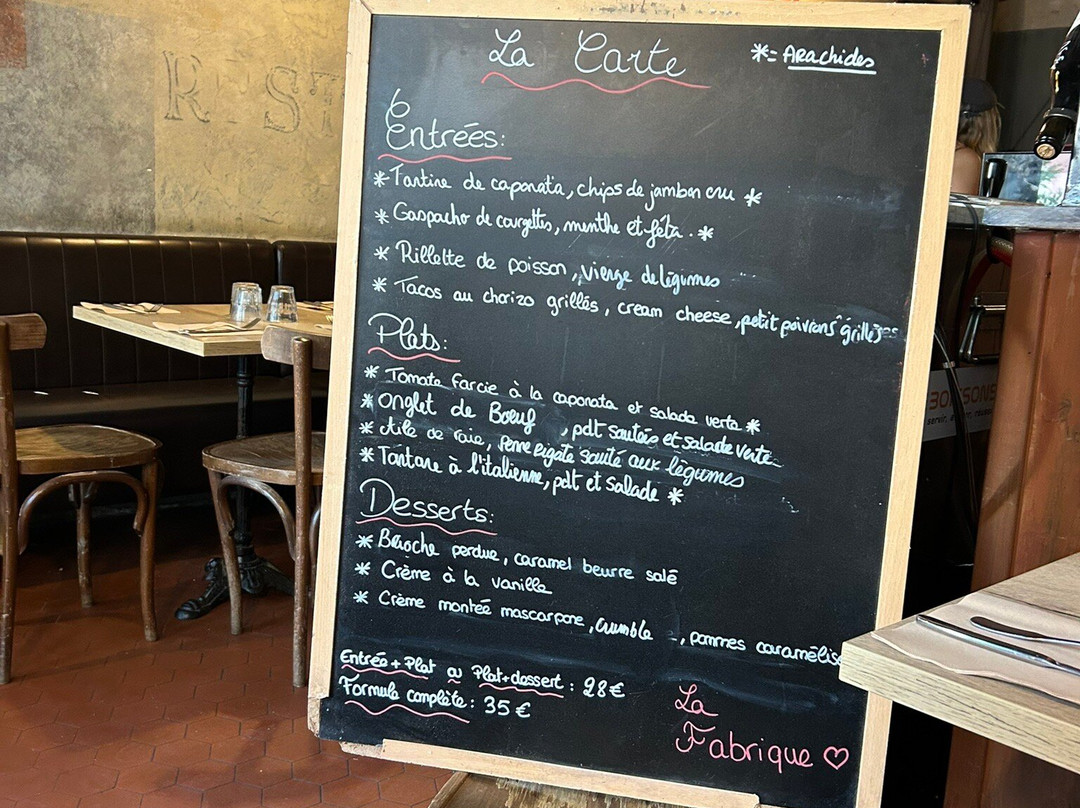 La Carte
*= Arachides
Entrées:
* Tartine de caponata, chips de jambon cru *
* Gaspacho de courgettes, menthe et féta . *
* Rillette de poisson, vierge de légumes
* Tacos au chorizo grillés, cream cheese, petit poivrons grillés
Plats:
* Tomate farcie à la caponata et salade verte *
* Onglet de Bœuf , pdt sautées et salade verte
* Aile de raie, penne rigate sauté aux légumes
* Tartare à l'italienne, pdt et salade *
Desserts:
* Brioche perdue, caramel beurre salé
* Crème à la vanille
* Crème montée mascarpone, crumble , pommes caramélisé
Entrée + Plat ou Plat + dessert : 28€
Formule complète : 35€
La
Fabrique ♡